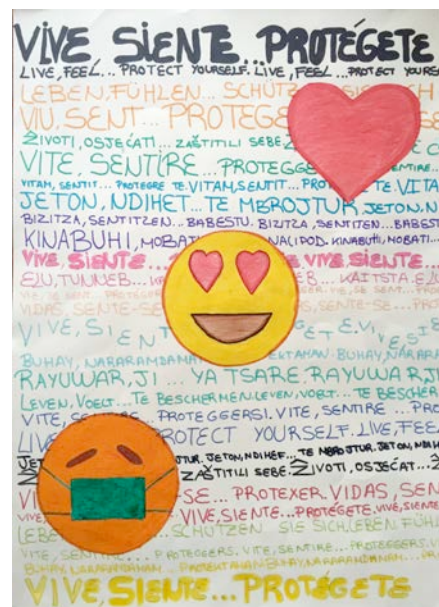 VIVE SIENTE... PROTÉGETE
LIVE, FEEL... PROTECT YOURSELF. LIVE, FEEL... PROTECT YOURSE
LEBEN, FÜHLEN... SCHÜTZ CH
VIU, SENT... PROTEGE
ŽIVOTI, OSJEĆATI... ZAŠTITILI SEBE.
VITE, SENTIRE... PROTEGGE
VITAM, SENTIT... PROTEGRE TE. VITAM, SENTIT... PRO TE. VITA
JETON, NDIHET... TE MBROJTUR. JETON, N
BIZITZA, SENTITZEN... BABESTU. BIZITZA, SENTITZEN... BABEST
KINABUHI, MOBATI NALIPOD. KINABUHI, MOBATI...
VIVE SIENTE... VIVE, SIENTE...
ELU, TUNNEB... EB... KAITSTA. ELU
VIE, SE SENT... PROTEGER
VIDAS, SENTE-SE... VIDAS, SENTE-SE... PRO
VIVE, SIENT GETE. VIVE, SIE
BUHAY, NARARAMDAMA EKTAHAN. BUHAY, NARARAM
RAYUWAR, JI... YA TSARE. RAYUWAR JI
LEVEN, VOELT... TE BESCHERMEN. LEVEN, VOELT... TE BESCHER
VITE, SENTIRE PROTEGGERSI. VITE, SENTIRE... PRO
LIVE ROTECT YOURSELF. LIVE, FEEL
JET MBROJTUR. JETON, NDIHET... TE MBROJTUR. JETON, NDIH
ZAŠTITILI SEBE. ŽIVOTI, OSJEĆAT... Z
VI SE... PROTEXER. VIDAS, SEN
VIVE, VIVE, SIENTE... PROTÉGETE. VIVE, SIENTE
LEBE SCHÜTZEN SIE SICH. LEBEN, FÜHL
VITE, SENTIRE... PROTEGGERS. VITE, SENTIRE... PROTEGGERS. V
BUHAY, NARARAMDAMAN... PROTEKTAHAN. BUHAY, NARARAMDAMAN...
VIVE, SIENTE... PROTÉGETE